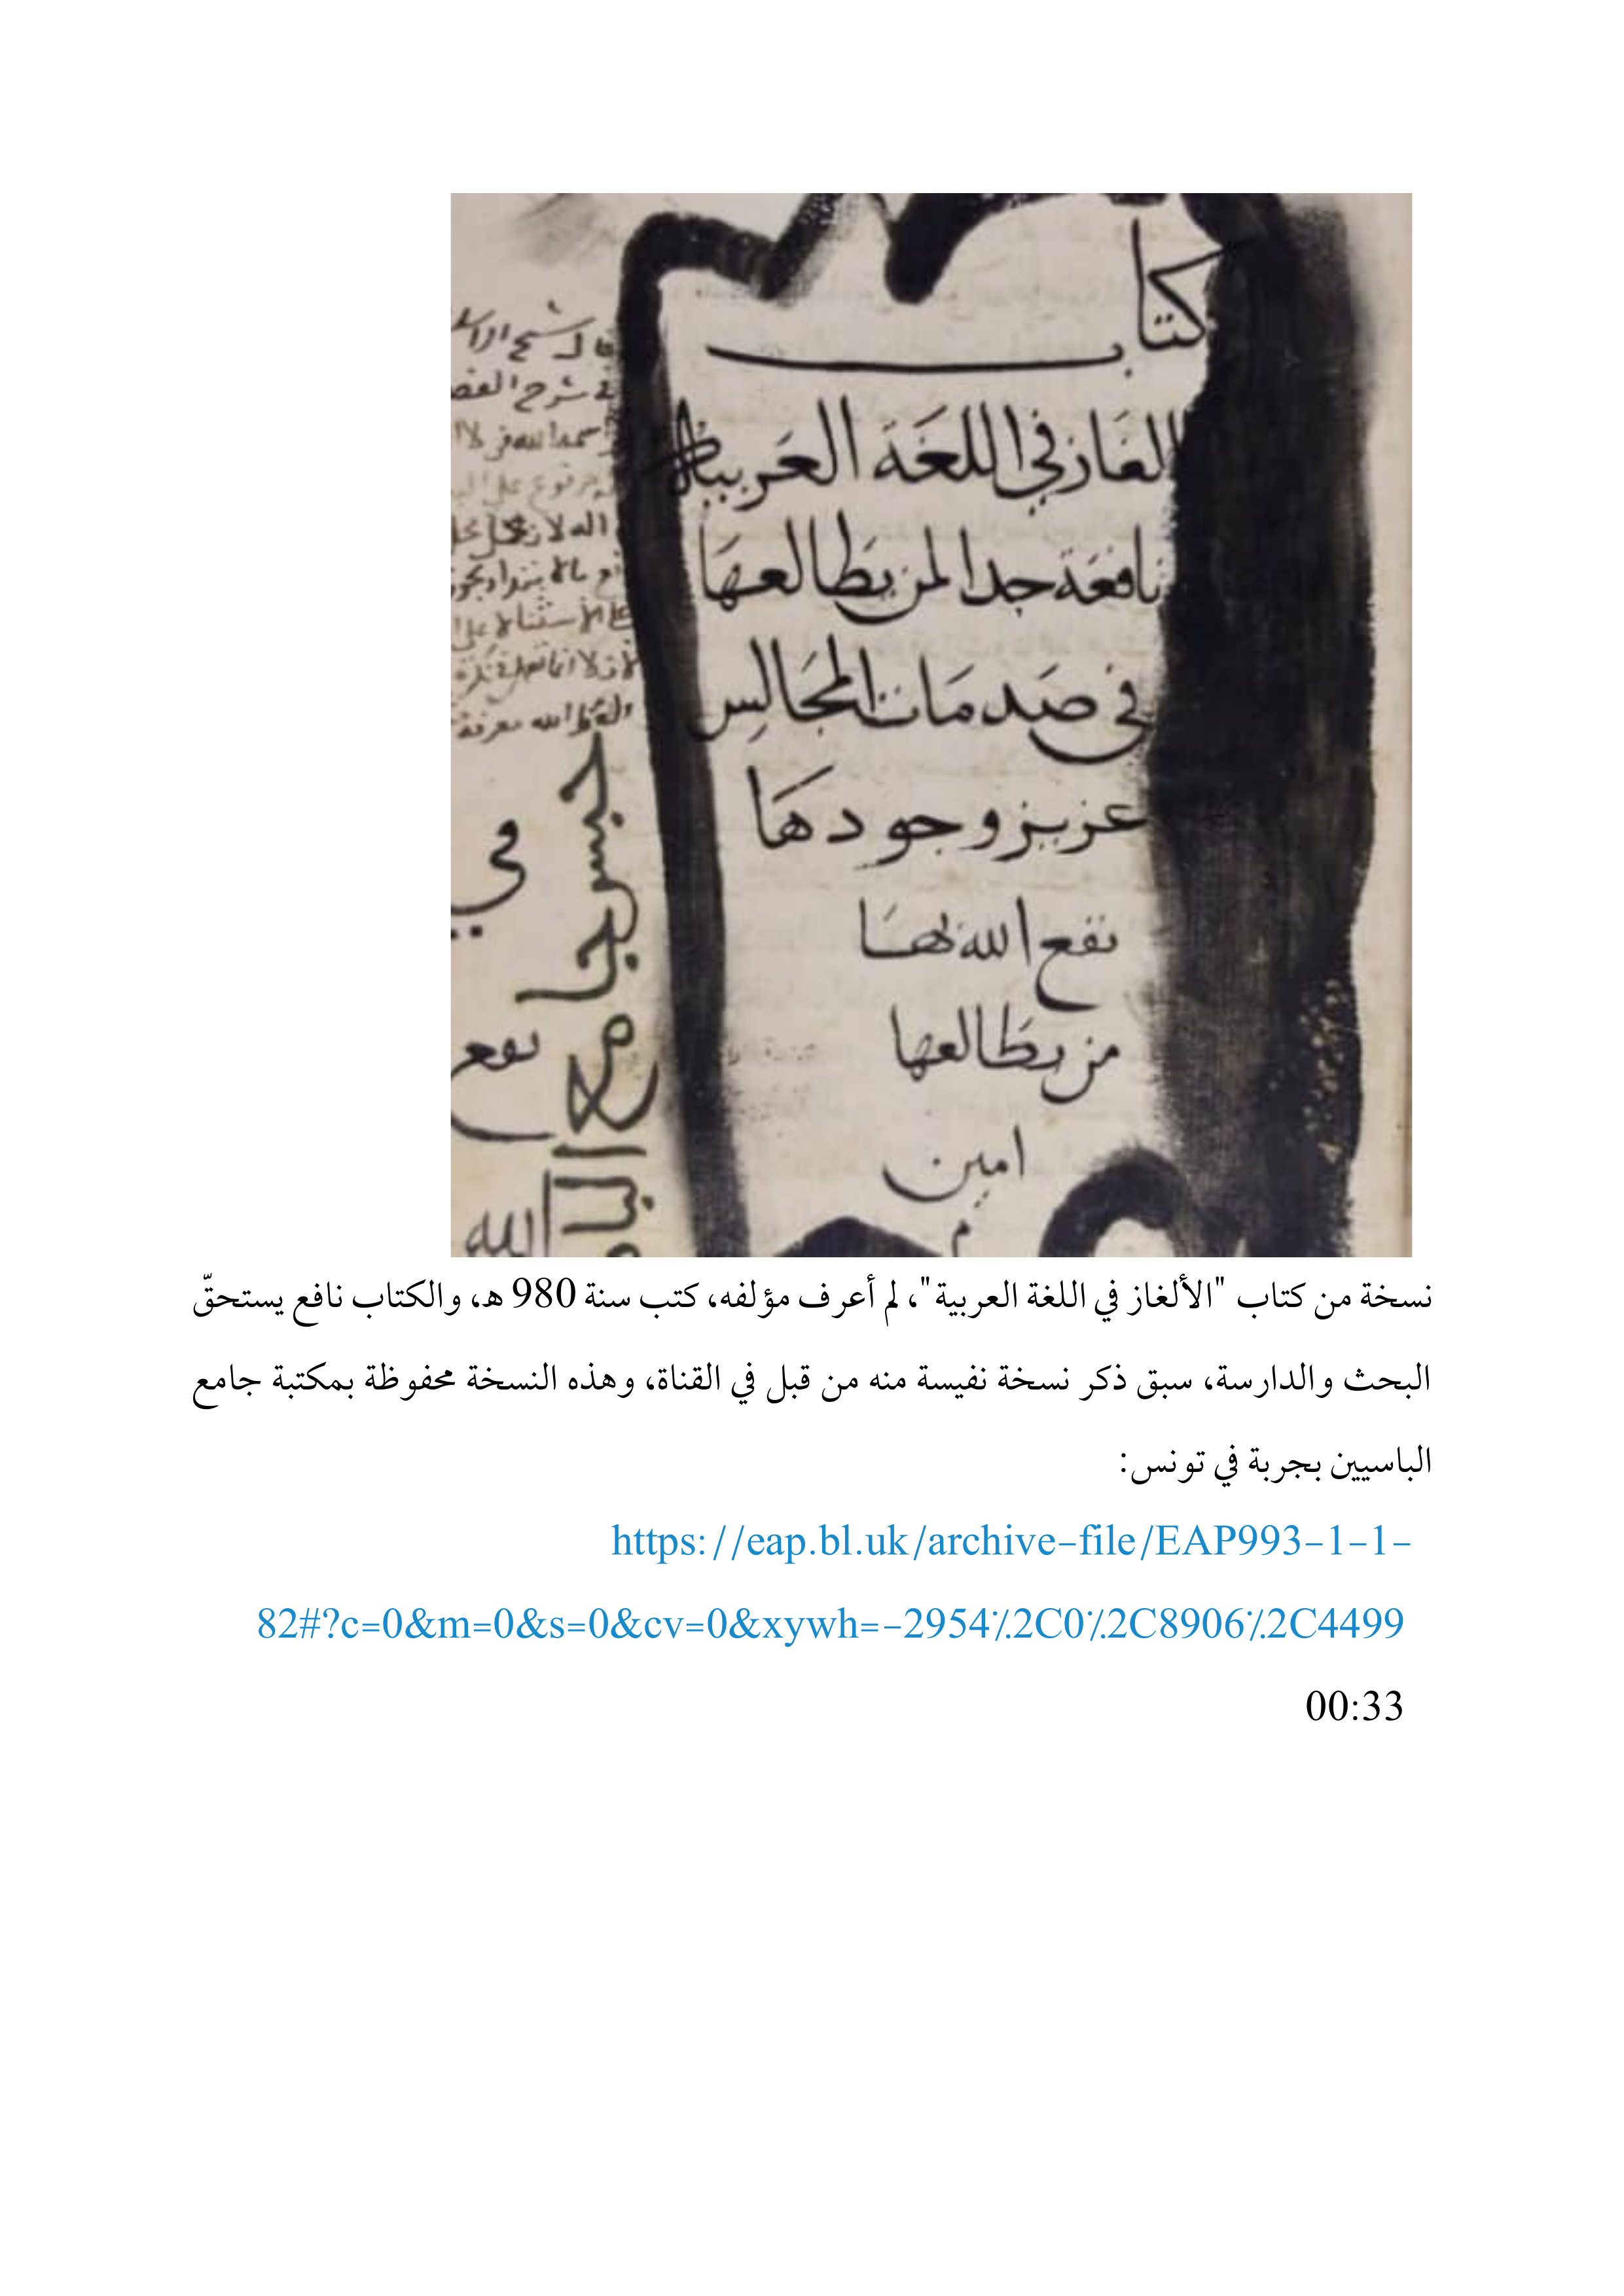 كتاب
الغاز في اللغة العربية
نافعة جدا لمن يطالعها
في صدمات المجالس
عزيز وجودها
نفع الله بها
من يطالعها
امين
في شرح
حبس جامع البا
في
نفع
الله
نسخة من كتاب "الألغاز في اللغة العربية"، لم أعرف مؤلفه، كتب سنة 980 هـ، والكتاب نافع يستحقّ
البحث والدارسة، سبق ذكر نسخة نفيسة منه من قبل في القناة، وهذه النسخة محفوظة بمكتبة جامع
الباسيين بجربة في تونس:
https://eap.bl.uk/archive-file/EAP993-1-1-
82#?c=0&m=0&s=0&cv=0&xywh=-2954%2C0%2C8906%2C4499
00:33